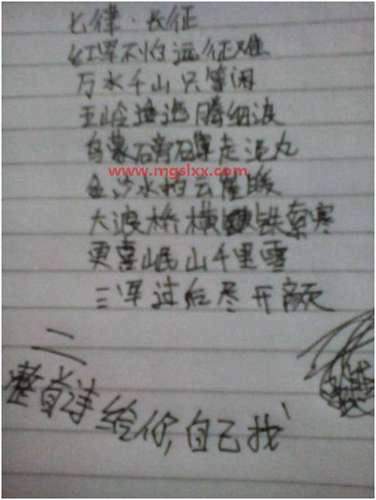 七律·长征
红军不怕远征难
万水千山只等闲
五岭逶迤腾细波
乌蒙磅礴走泥丸
www.mgslxx.com
金沙水拍云崖暖
大波桥横铁索寒
更喜岷山千里雪
三军过后尽开颜
二
整首诗给你,自己找